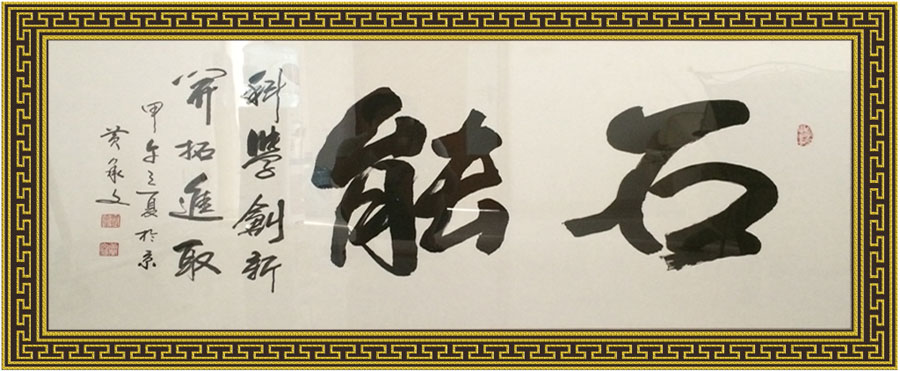 石能
科學創新
開拓進取
甲午之夏於京
黄承文